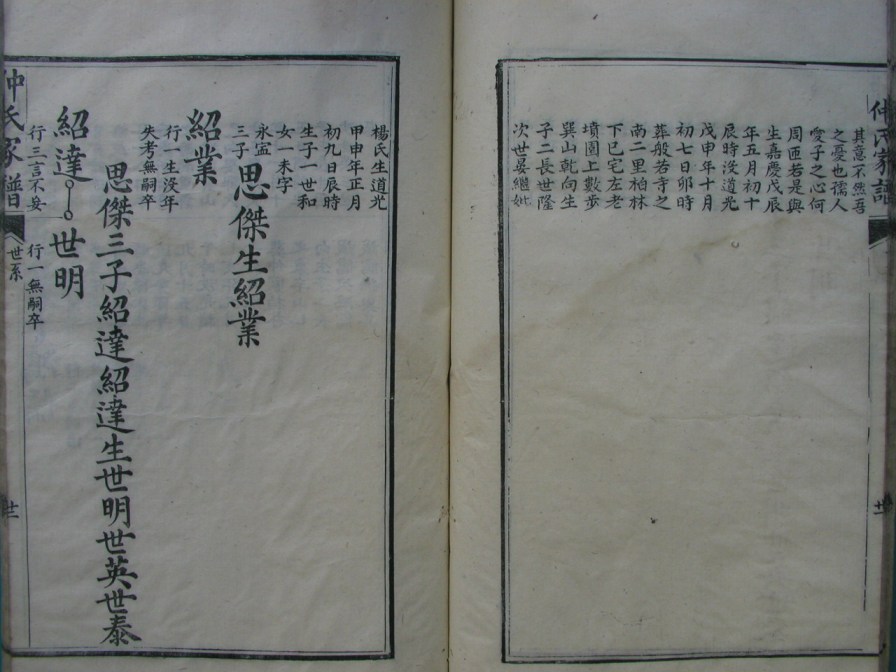 仲氏家譜
廿一
其意不然吾
之憂也孺人
愛子之心何
周匝若是與
生嘉慶戊辰
年五月初十
辰時没道光
戊申年十月
初七日卯時
葬般若寺之
南二里柏林
下巳宅左老
墳園上數步
巽山乾向生
子二長世隆
次世晏繼妣
楊氏生道光
甲申年正月
初九日辰時
生子一世和
女一未字
永寍
三子思傑生紹業
紹業
行一生没年
失考無嗣卒
思傑三子紹達紹達生世明世英世泰
紹達世明
行三言不妄
行一無嗣卒
仲氏家譜
世系
廿一